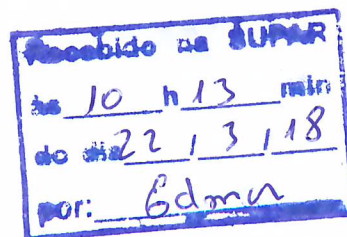 Recebido na SUPAR
às 10 h 13 min
do dia 22 / 3 / 18
por: Edmar